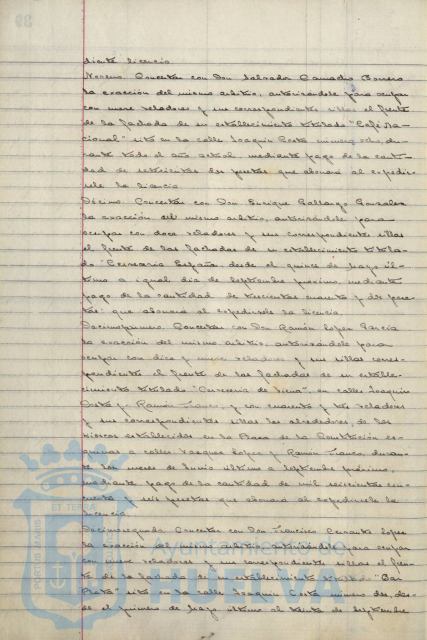 diente licencia
Noveno. Concertar con Don Salvador Camacho Borrero
la exacción del mismo arbitrio, autorizándole para ocupar
con nueve veladores y sus correspondientes sillas el frente
de la fachada de su establecimiento titulado "Café Na-
cional" sito en la calle Joaquín Costa número ocho, du-
rante todo el año actual, mediante pago de la canti-
dad de setecientas dos pesetas que abonará al expedir-
sele la licencia
Décimo. Concertar con Don Enrique Gallango González
la exacción del mismo arbitrio, autorizándole para
ocupar con doce veladores y sus correspondientes sillas
el frente de las fachadas de su establecimiento titula-
do "Cervecería España, desde el quince de Mayo úl-
timo a igual día de Septiembre próximo, mediante
pago de la cantidad de trescientas cuarenta y dos pese-
tas: que abonará al expedirsele la licencia.
Decimoprimero. Concertar con Don Ramón López García
la exacción del mismo arbitrio, autorizándole para
ocupar con diez y nueve veladores y sus sillas corres-
pondientes el frente de las fachadas de su estable-
cimiento titulado "Cervecería de Viena", en calles Joaquín
Costa y Ramón Franco, y con cuarenta y tres veladores
y sus correspondientes sillas los alrededores, de los
kioscos establecidos en la Plaza de la Constitución es-
quinas a calles Vázquez López y Ramón Franco, duran-
te los meses de Junio último a Septiembre próximo,
mediante pago de la cantidad de mil seiscientas cin-
cuenta y seis pesetas que abonará al expedirsele la
licencia.
Decimosegundo. Concertar con Don Francisco Cervantes López
la exacción del mismo arbitrio autorizándole para ocupar
con nueve veladores y sus correspondientes sillas el fren-
te de la fachada de su establecimiento titulado "Bar
Plata" sito en la calle Joaquín Costa número dos, des-
de el primero de Mayo último al treinta de Septiembre
PORTUS MARIS
ET TERRAE
Ayuntamiento de
HUELVA